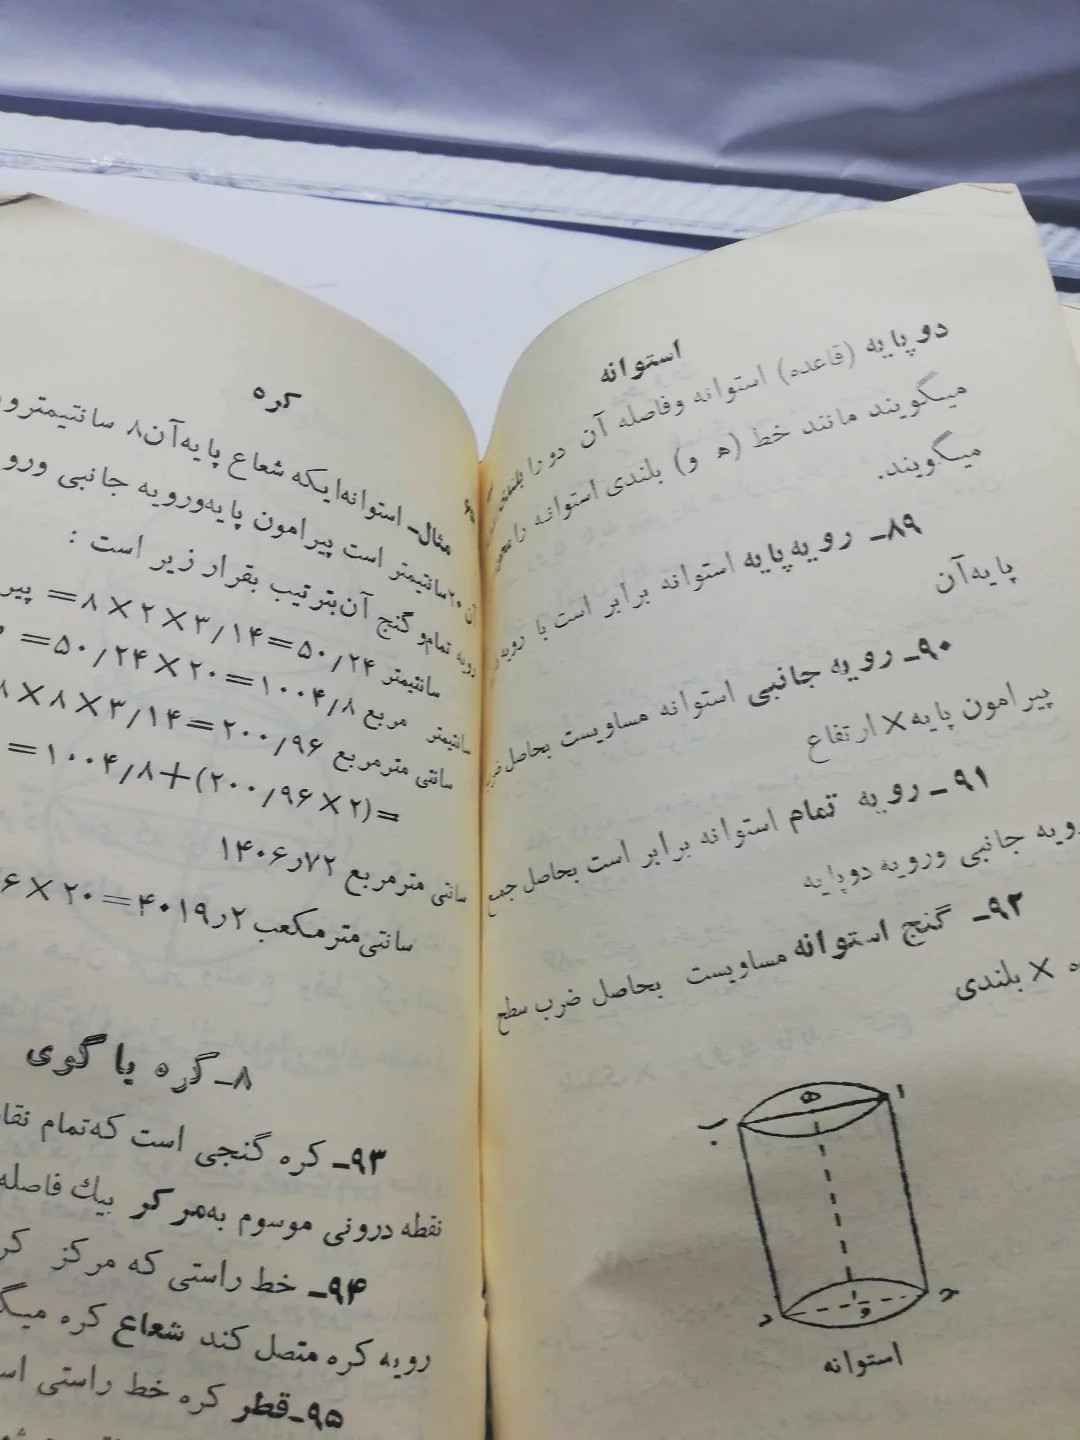 استوانه
دو پایه (قاعده) استوانه وفاصله آن دو را بلندی
میگویند مانند خط (ه و) بلندی استوانه را
میگویند.
۸۹ـ رویه پایه استوانه برابر است با رویه
پایه آن
۹۰ـ رویه جانبی استوانه مساویست بحاصل ضرب
پیرامون پایه × ارتفاع
۹۱ـ رویه تمام استوانه برابر است بحاصل جمع
رویه جانبی ورویه دوپایه
۹۲ـ گنج استوانه مساویست بحاصل ضرب سطح
× بلندی
ب ه ا
د و ج
استوانه
کره
مثال ـ استوانه‌ایکه شعاع پایه آن ۸ سانتیمتر و
آن ۲۰ سانتیمتر است پیرامون پایه ورویه جانبی ورو
رویه تمام و گنج آن بترتیب بقرار زیر است :
سانتیمتر ۵۰/۲۴=۳/۱۴×۲×۸=
سانتیمتر مربع ۱۰۰۴/۸=۲۰×۵۰/۲۴=
سانتی مترمربع ۲۰۰/۹۶=۳/۱۴×۸×۸
=(۲×۲۰۰/۹۶)+۱۰۰۴/۸=
سانتی مترمربع ۱۴۰۶ر۷۲
سانتی‌مترمکعب ۴۰۱۹ر۲=۲۰×
۸ـ کره یا گوی
۹۳ـ کره گنجی است که تمام
نقطه درونی موسوم به مرکز بیك فاصله
۹۴ـ خط راستی که مرکز
رویه کره متصل کند شعاع کره
۹۵ـ قطر کره خط راستی